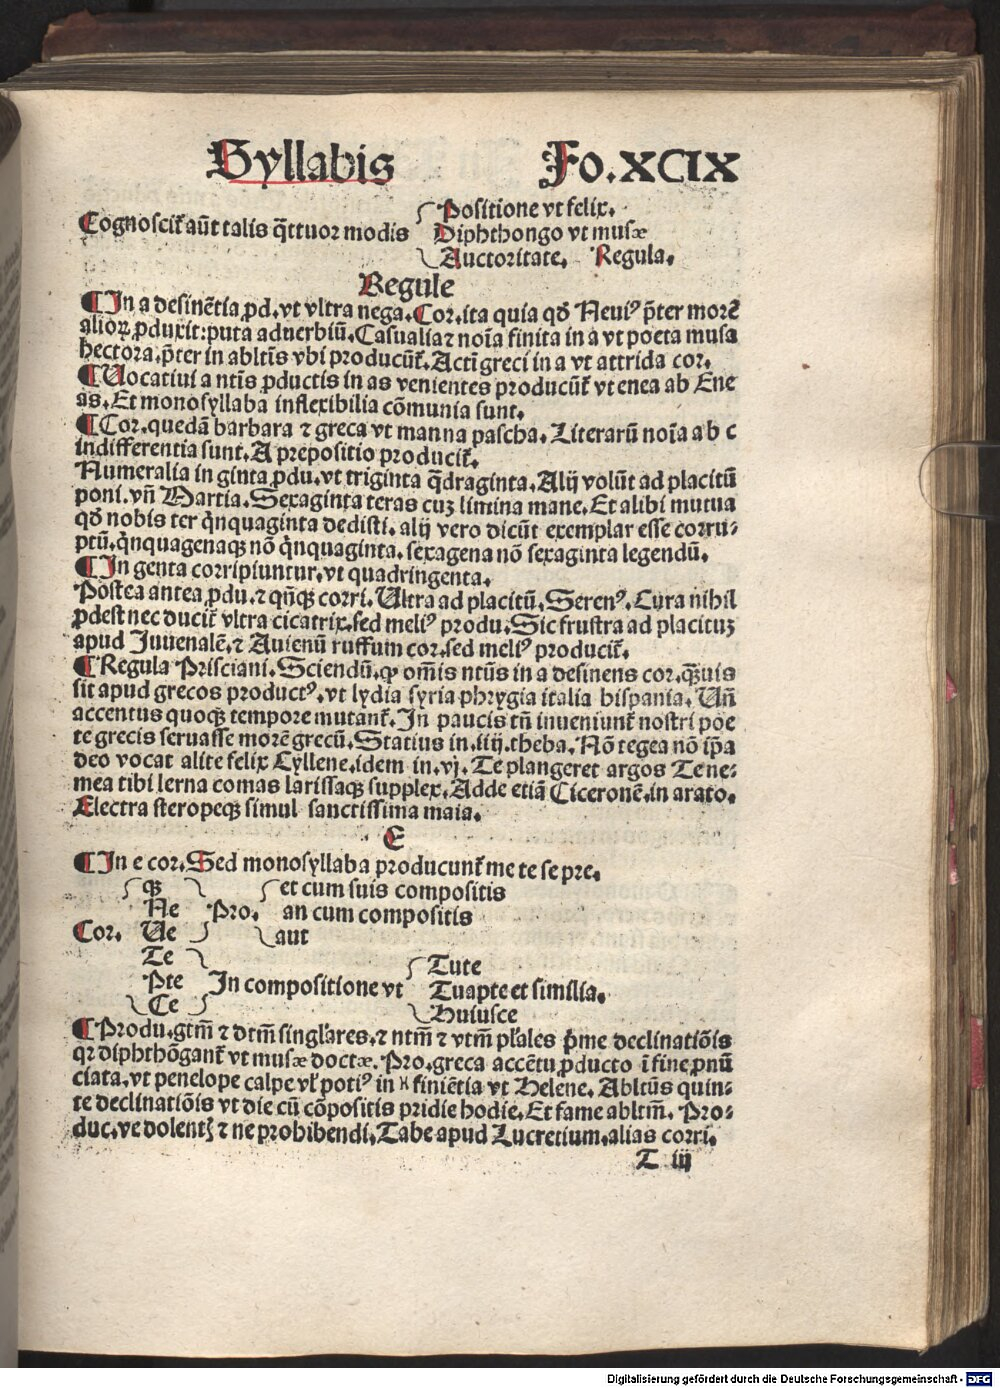 Syllabis Fo.XCIX
Positione vt felix.
Cognoscit᷑ aūt talis q̄ttuor modis Diphthongo vt musæ
Auctoritate. Regula.
Regule
¶In a desinētia ꝓd. vt vltra nega. Cor. ita quia qđ Neuiꝰ p̄ter morē
alioꝝ ꝓduxit: puta aduerbiū. Casualia ⁊ noīa finita in a vt poeta musa
hectora. p̄ter in abltīs vbi producūt᷑. Actī greci in a vt attrida cor.
¶Uocatiui a ntīs ꝓductis in as venientes producūt᷑ vt enea ab Ene
as. Et monosyllaba inflexibilia cōmunia sunt.
¶Cor. quedā barbara ⁊ greca vt manna pascha. Literarū noīa a b c
indifferentia sunt. A prepositio producit᷑.
Numeralia in ginta ꝓdu. vt triginta q̄draginta. Alij volūt ad placitū
poni. vñ Martia. Sexaginta teras cuꝫ limina mane. Et alibi mutua
qđ nobis ter q̇nquaginta dedisti. alij vero dicūt exemplar esse corru⸗
ptū. q̇nquagenaqꝫ nō q̇nquaginta. sexagena nō sexaginta legendū.
¶In genta corripiuntur. vt quadringenta.
Postea antea ꝓdu. ⁊ qn̄qꝫ corri. Ultra ad placitū. Serenꝰ. Cura nihil
ꝓdest nec ducit᷑ vltra cicatrix. sed meliꝰ produ. Sic frustra ad placituꝫ
apud Juuenalē. ⁊ Auienū ruffum cor. sed meliꝰ producit᷑.
¶Regula Prisciani. Sciendū. ꝙ om̄is ntūs in a desinens cor. q̄uis
sit apud grecos productꝰ. vt lydia syria phrygia italia hispania. Uñ
accentus quoqꝫ tempore mutant᷑. In paucis tn̄ inueniunt᷑ nostri poe
te grecis seruasse morē grecū. Statius in. iiij. theba. Nō tegea nō ip̄a
deo vocat alite felix Cyllene. idem in. vj. Te plangeret argos Te ne⸗
mea tibi lerna comas larissaqꝫ supplex. Adde etiā Ciceronē. in arato.
Electra steropeqꝫ simul sanctissima maia.
E
¶In e cor. Sed monosyllaba producunt᷑ me te se pre.
qꝫ et cum suis compositis
Ne Pro. an cum compositis
Cor. Ue aut
Te Tute
Pte In compositione vt Tuapte et similia.
Ce Huiusce
¶Produ. gtm̄ ⁊ dtm̄ singl'ares. ⁊ ntm̄ ⁊ vtm̄ pl'ales p̄me declinatiōis
qꝛ diphthōgant᷑ vt musæ doctæ. Pro. greca accētu ꝓducto ī fine ꝓnū
ciata. vt penelope calpe vl' potiꝰ in η finiētia vt Helene. Abltūs quin⸗
te declinatiōis vt die cū cōpositis pridie hodie. Et fame abltm̄. Pro⸗
duc. ve dolentꝭ ⁊ ne prohibendi. Tabe apud Lucretium. alias corri.
T iij
Digitalisierung gefördert durch die Deutsche Forschungsgemeinschaft - DFG